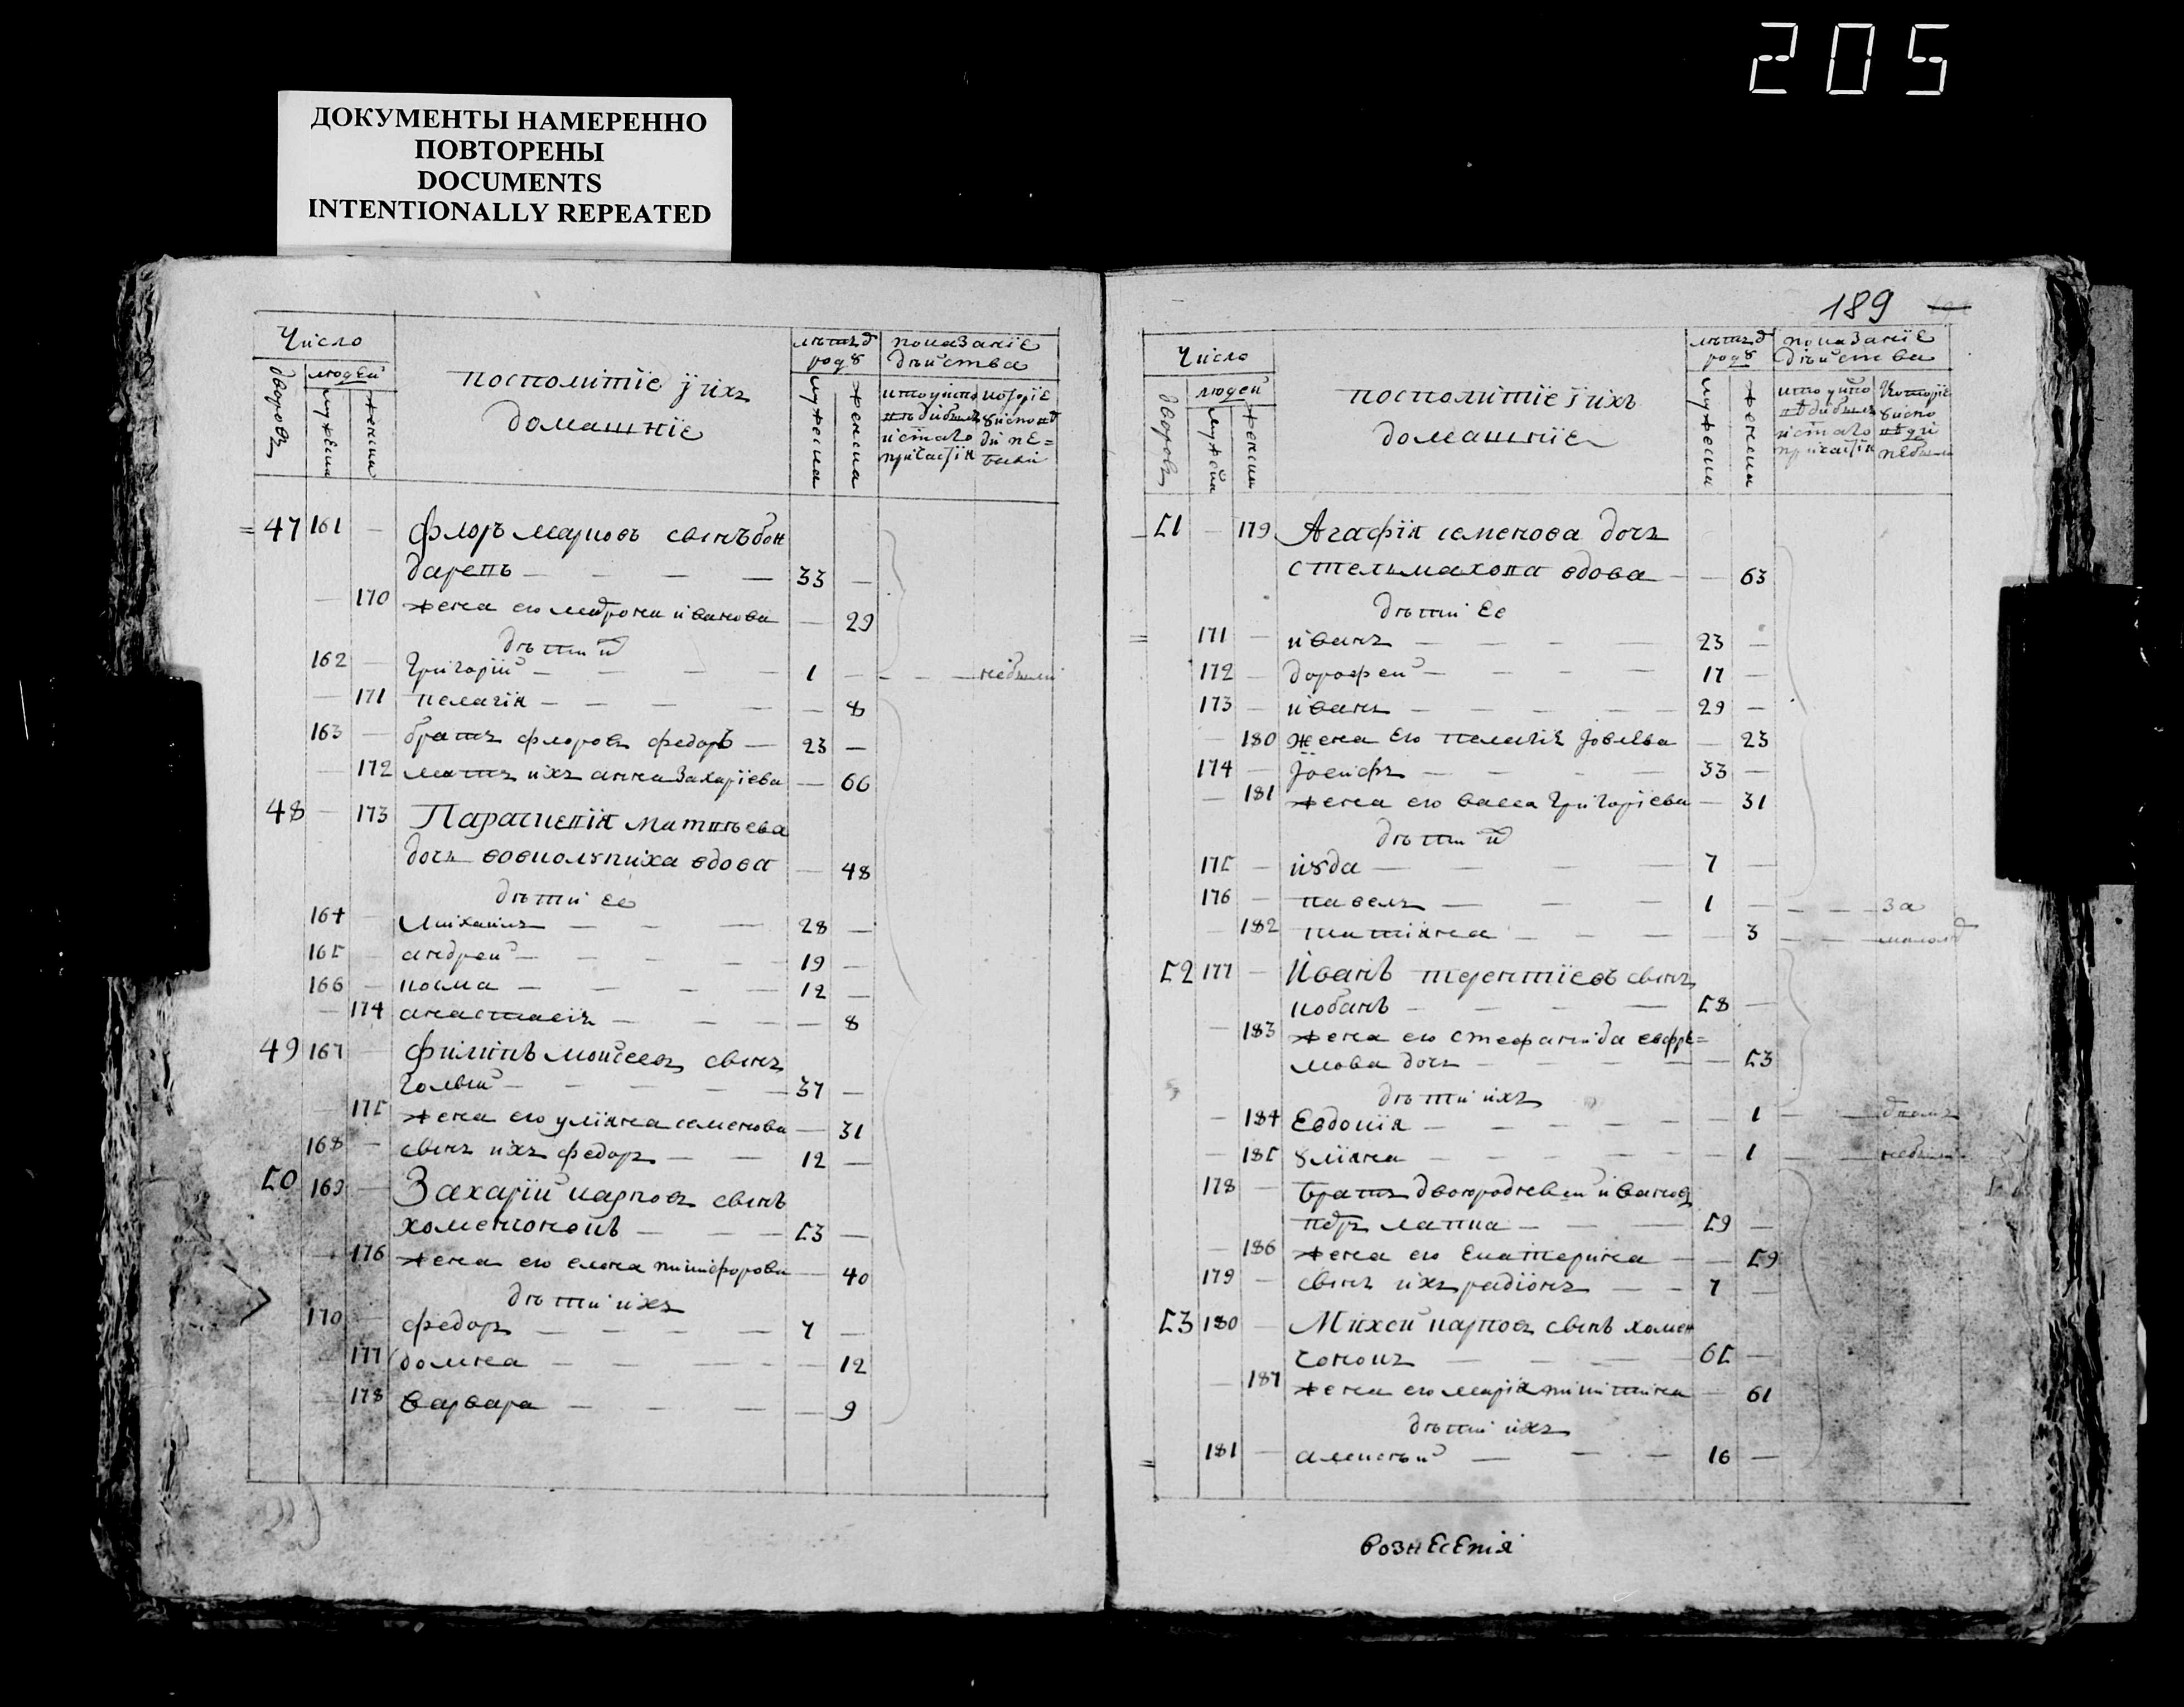 205
ДОКУМЕНТЫ НАМЕРЕННО
ПОВТОРЕНЫ
DOCUMENTS
INTENTIONALLY REPEATED
Число
людей
дворовъ
мужеска
женска
посполитіе и ихъ
домашніе
лѣтъ ѿ
родꙋ
мужеска
женска
показаніе
дѣйства
кто у испо
вѣди былъ
и стаго
причастія
которіе
ꙋ исповѣ
ди не=
были
47 161 — Флоръ марковъ сынъ бон
дарепъ — — — — 33 —
— 170 жена его матрона иванова — 29
дѣти их
162 — григорій — — — — 1 — — — — небылъ
— 171 пелагія — — — — — 8
163 — братъ флоровъ федоръ — 23 —
— 172 мать ихъ анна захаріева — 66
48 — 173 Параскевія матвѣева
дочь вовколупиха вдова — 48
дѣти ее
164 — михаилъ — — — 28 —
165 — андрей — — — — 19 —
166 — косма — — — — 12 —
— 174 анастасія — — — — 8
49 167 — Филипъ моисеевъ сынъ
голый — — — — 37 —
— 175 жена его уліяна семенова — 31
168 — сынъ ихъ федоръ — — 12 —
50 169 — Захарій карповъ сынъ
хоменчонокъ — — — 53 —
— 176 жена его елена никифорова — 40
дѣти ихъ
170 — федоръ — — — — 7 —
— 177 домна — — — — — 12
— 178 варвара — — — — 9
189
Число
людей
дворовъ
мужеска
женска
посполитіе и ихъ
домашніе
лѣтъ ѿ
родꙋ
мужеска
женска
показаніе
дѣйства
кто у испо
вѣди былъ
и стаго
причастія
которіе
ꙋ испо
вѣди
небыли
51 — 179 Агафія семенова дочь
стельмахова вдова — — 63
дѣти ее
171 — иванъ — — — — 23 —
172 — дорофей — — — — 17 —
173 — иванъ — — — — 29 —
— 180 жена его пелагія — 23
174 — іосифъ — — — — 33 —
— 181 жена его васса григоріева — 31
дѣти их
175 — іюда — — — 7 —
176 — павелъ — — — 1 — — — — за
— 182 татіяна — — — — 3 — — — малолѣ
52 177 — Иванъ терентіевъ сынъ
кобанъ — — — — 58 —
— 183 жена его стефанида евфре=
мова дочь — — — — — 53
дѣти ихъ
— 184 Евдокія — — — — — — 1
— 185 ꙋліяна — — — — — — 1 — — небыли
178 — братъ двоюродневый ивановъ
петръ лапка — — — 59 —
— 186 жена его Екатерина — — 59
179 — сынъ ихъ радіонъ — — 7 —
53 180 — Михей карповъ сынъ хомен
чонокъ — — — — 65 —
— 187 жена его марія никитина — 61
дѣти ихъ
181 — алексѣй — — — 16 —
вознесенія